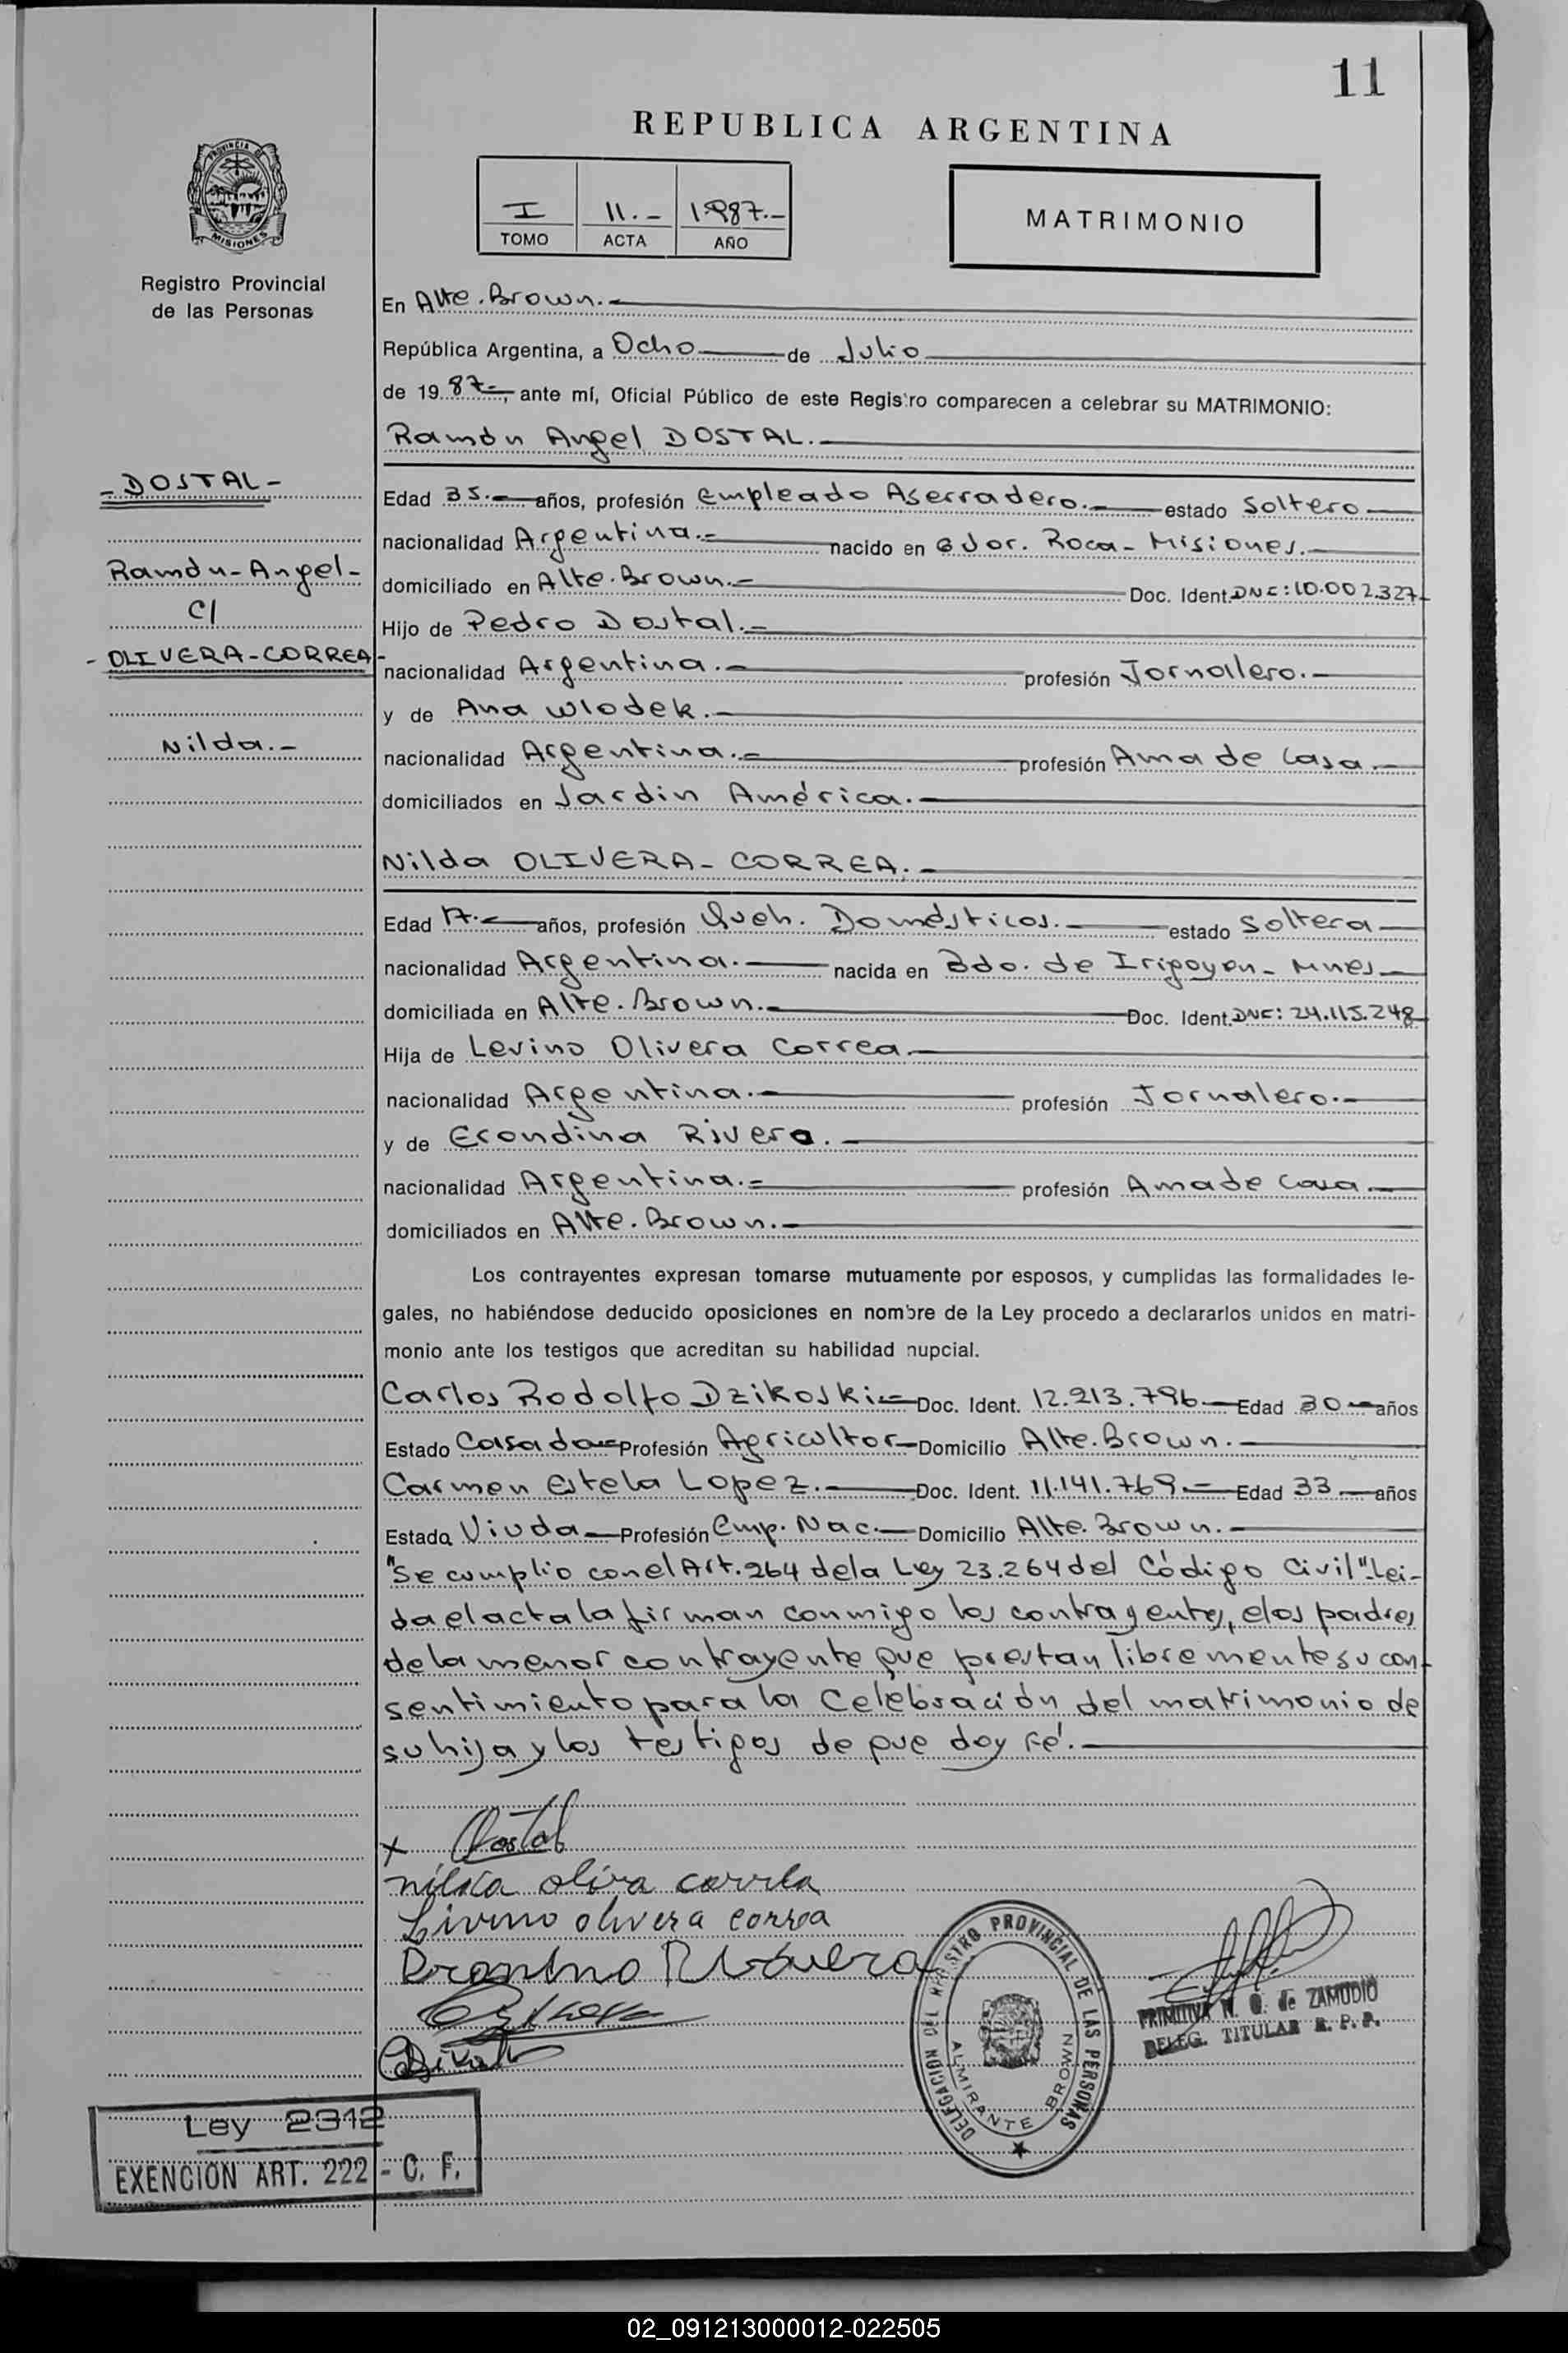 11
REPUBLICA ARGENTINA
PROVINCIA DE
MISIONES
I 11.- 1987.-
TOMO ACTA AÑO
MATRIMONIO
Registro Provincial
de las Personas
En Alte. Brown.-
República Argentina, a Ocho de Julio
de 1987-, ante mí, Oficial Público de este Registro comparecen a celebrar su MATRIMONIO:
Ramón Angel DOSTAL.-
- DOSTAL -
Ramón - Angel -
C/
- OLIVERA - CORREA -
Nilda.-
Edad 35.- años, profesión Empleado Aserradero.- estado Soltero
nacionalidad Argentina.- nacido en Gdor. Roca - Misiones.-
domiciliado en Alte. Brown.- Doc. Ident. DNI: 10.002.327
Hijo de Pedro Dostal.-
nacionalidad Argentina.- profesión Jornalero.-
y de Ana Wlodek.-
nacionalidad Argentina.- profesión Ama de Casa.-
domiciliados en Jardin América.-
Nilda OLIVERA - CORREA.-
Edad 17.- años, profesión Queh. Domésticos.- estado Soltera
nacionalidad Argentina.- nacida en Bdo. de Irigoyen - Mnes
domiciliada en Alte. Brown.- Doc. Ident. DNI: 24.115.248
Hija de Levino Olivera Correa.-
nacionalidad Argentina.- profesión Jornalero.-
y de Erondina Rivero.-
nacionalidad Argentina.- profesión Ama de Casa.-
domiciliados en Alte. Brown.-
Los contrayentes expresan tomarse mutuamente por esposos, y cumplidas las formalidades le-
gales, no habiéndose deducido oposiciones en nombre de la Ley procedo a declararlos unidos en matri-
monio ante los testigos que acreditan su habilidad nupcial.
Carlos Rodolfo Dzikoski.- Doc. Ident. 12.213.796.- Edad 30 años
Estado Casado Profesión Agricultor Domicilio Alte. Brown.-
Carmen Estela Lopez.- Doc. Ident. 11.141.769.- Edad 33 años
Estado Viuda Profesión Emp. Nac.- Domicilio Alte. Brown.-
"Se cumplio con el Art. 264 de la Ley 23.264 del Código Civil". Lei-
da el acta la firman conmigo los contrayentes, elos padres
de la menor contrayente que prestan libremente su con-
sentimiento para la Celebración del matrimonio de
su hija y los testigos de que doy Fé.-
x Dostal
nilda olivra correa
Livino olivera correa
DELEGACION DEL REGISTRO PROVINCIAL DE LAS PERSONAS
ALMIRANTE BROWN
de ZAMUDIO
DELEG. TITULAR R. P. P.
Ley 2312
EXENCION ART. 222 - C. F.
02_091213000012-022505